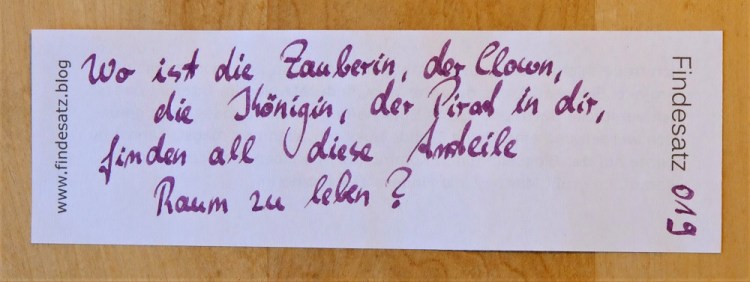 www.findesatz.blog
Wo ist die Zauberin, der Clown,
die Königin, der Pirat in dir,
finden all diese Anteile
Raum zu leben?
Findesatz 019